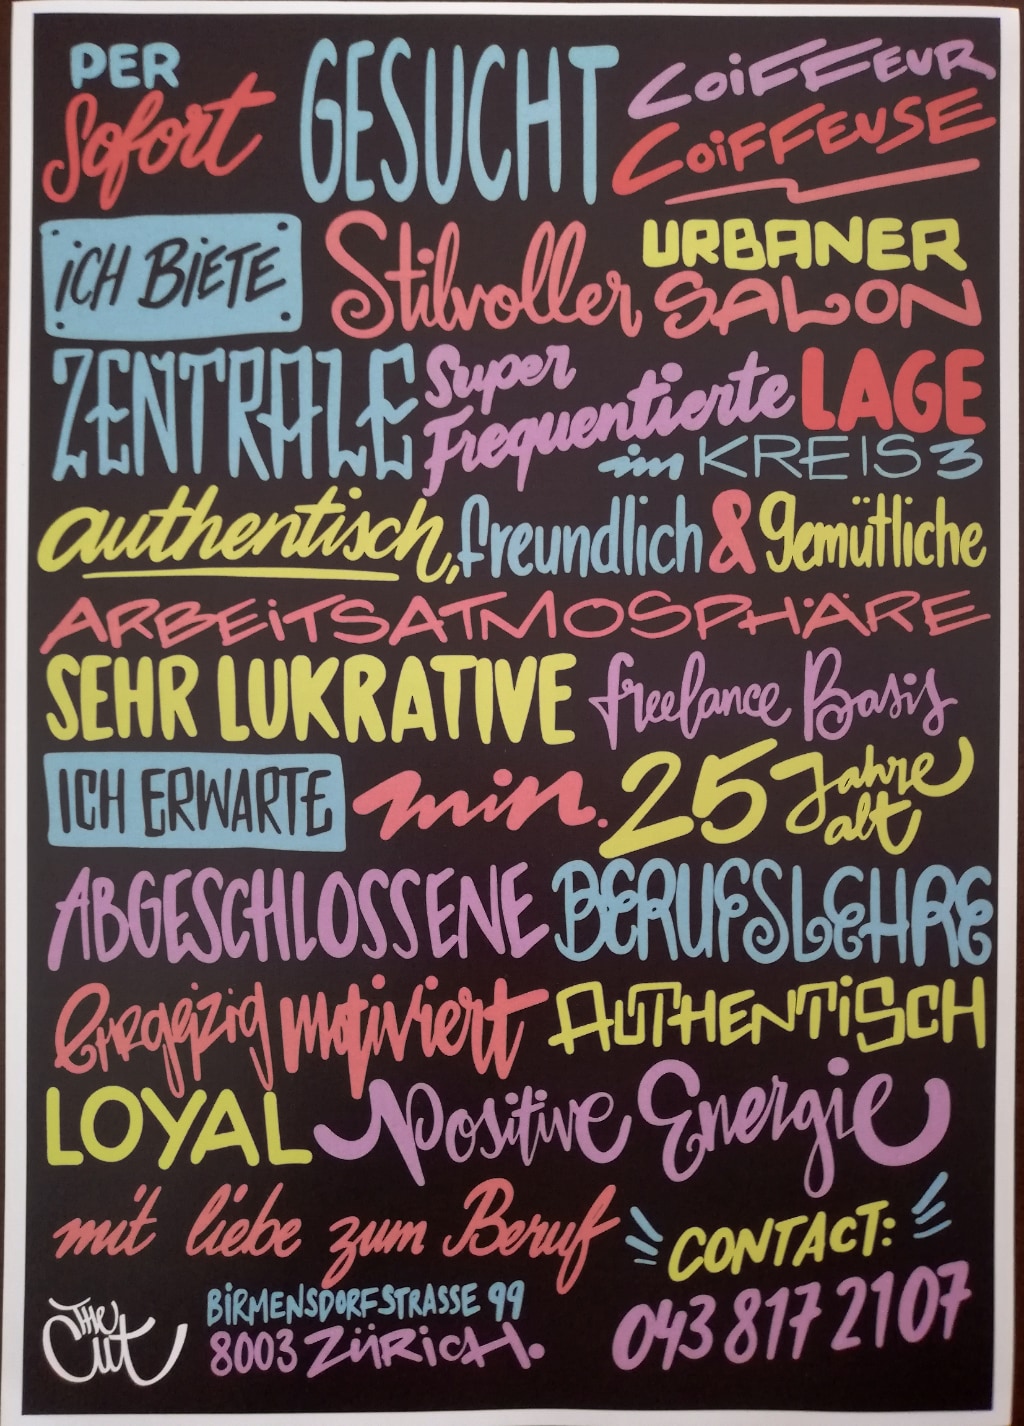 PER Sofort GESUCHT COiFFEUR
COiFFEUSE
iCH BiETE Stilvoller URBANER
SALON
ZENTRALE Super
Frequentierte LAGE
im KREIS 3
authentisch, freundlich & gemütliche
ARBEiTSATMOSPHÄRE
SEHR LUKRATIVE freelance Basis
ICH ERWARTE min. 25 Jahre
alt
ABGESCHLOSSENE BERUFSLEHRE
Ergeizig motiviert AUTHENTiSCH
LOYAL Positive Energie
mit liebe zum Beruf CONTACT:
The Cut
BiRMENSDORFSTRASSE 99
8003 ZÜRiCH.
043 817 2107